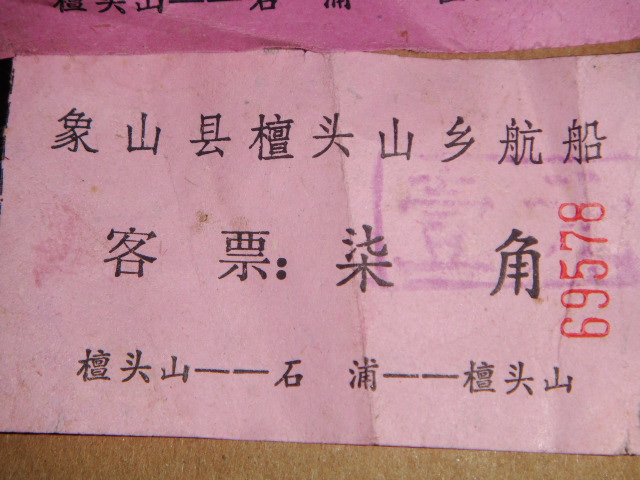 檀头山——石 浦
象山县檀头山乡航船
客 票:柒 角
69578
檀头山——石 浦——檀头山